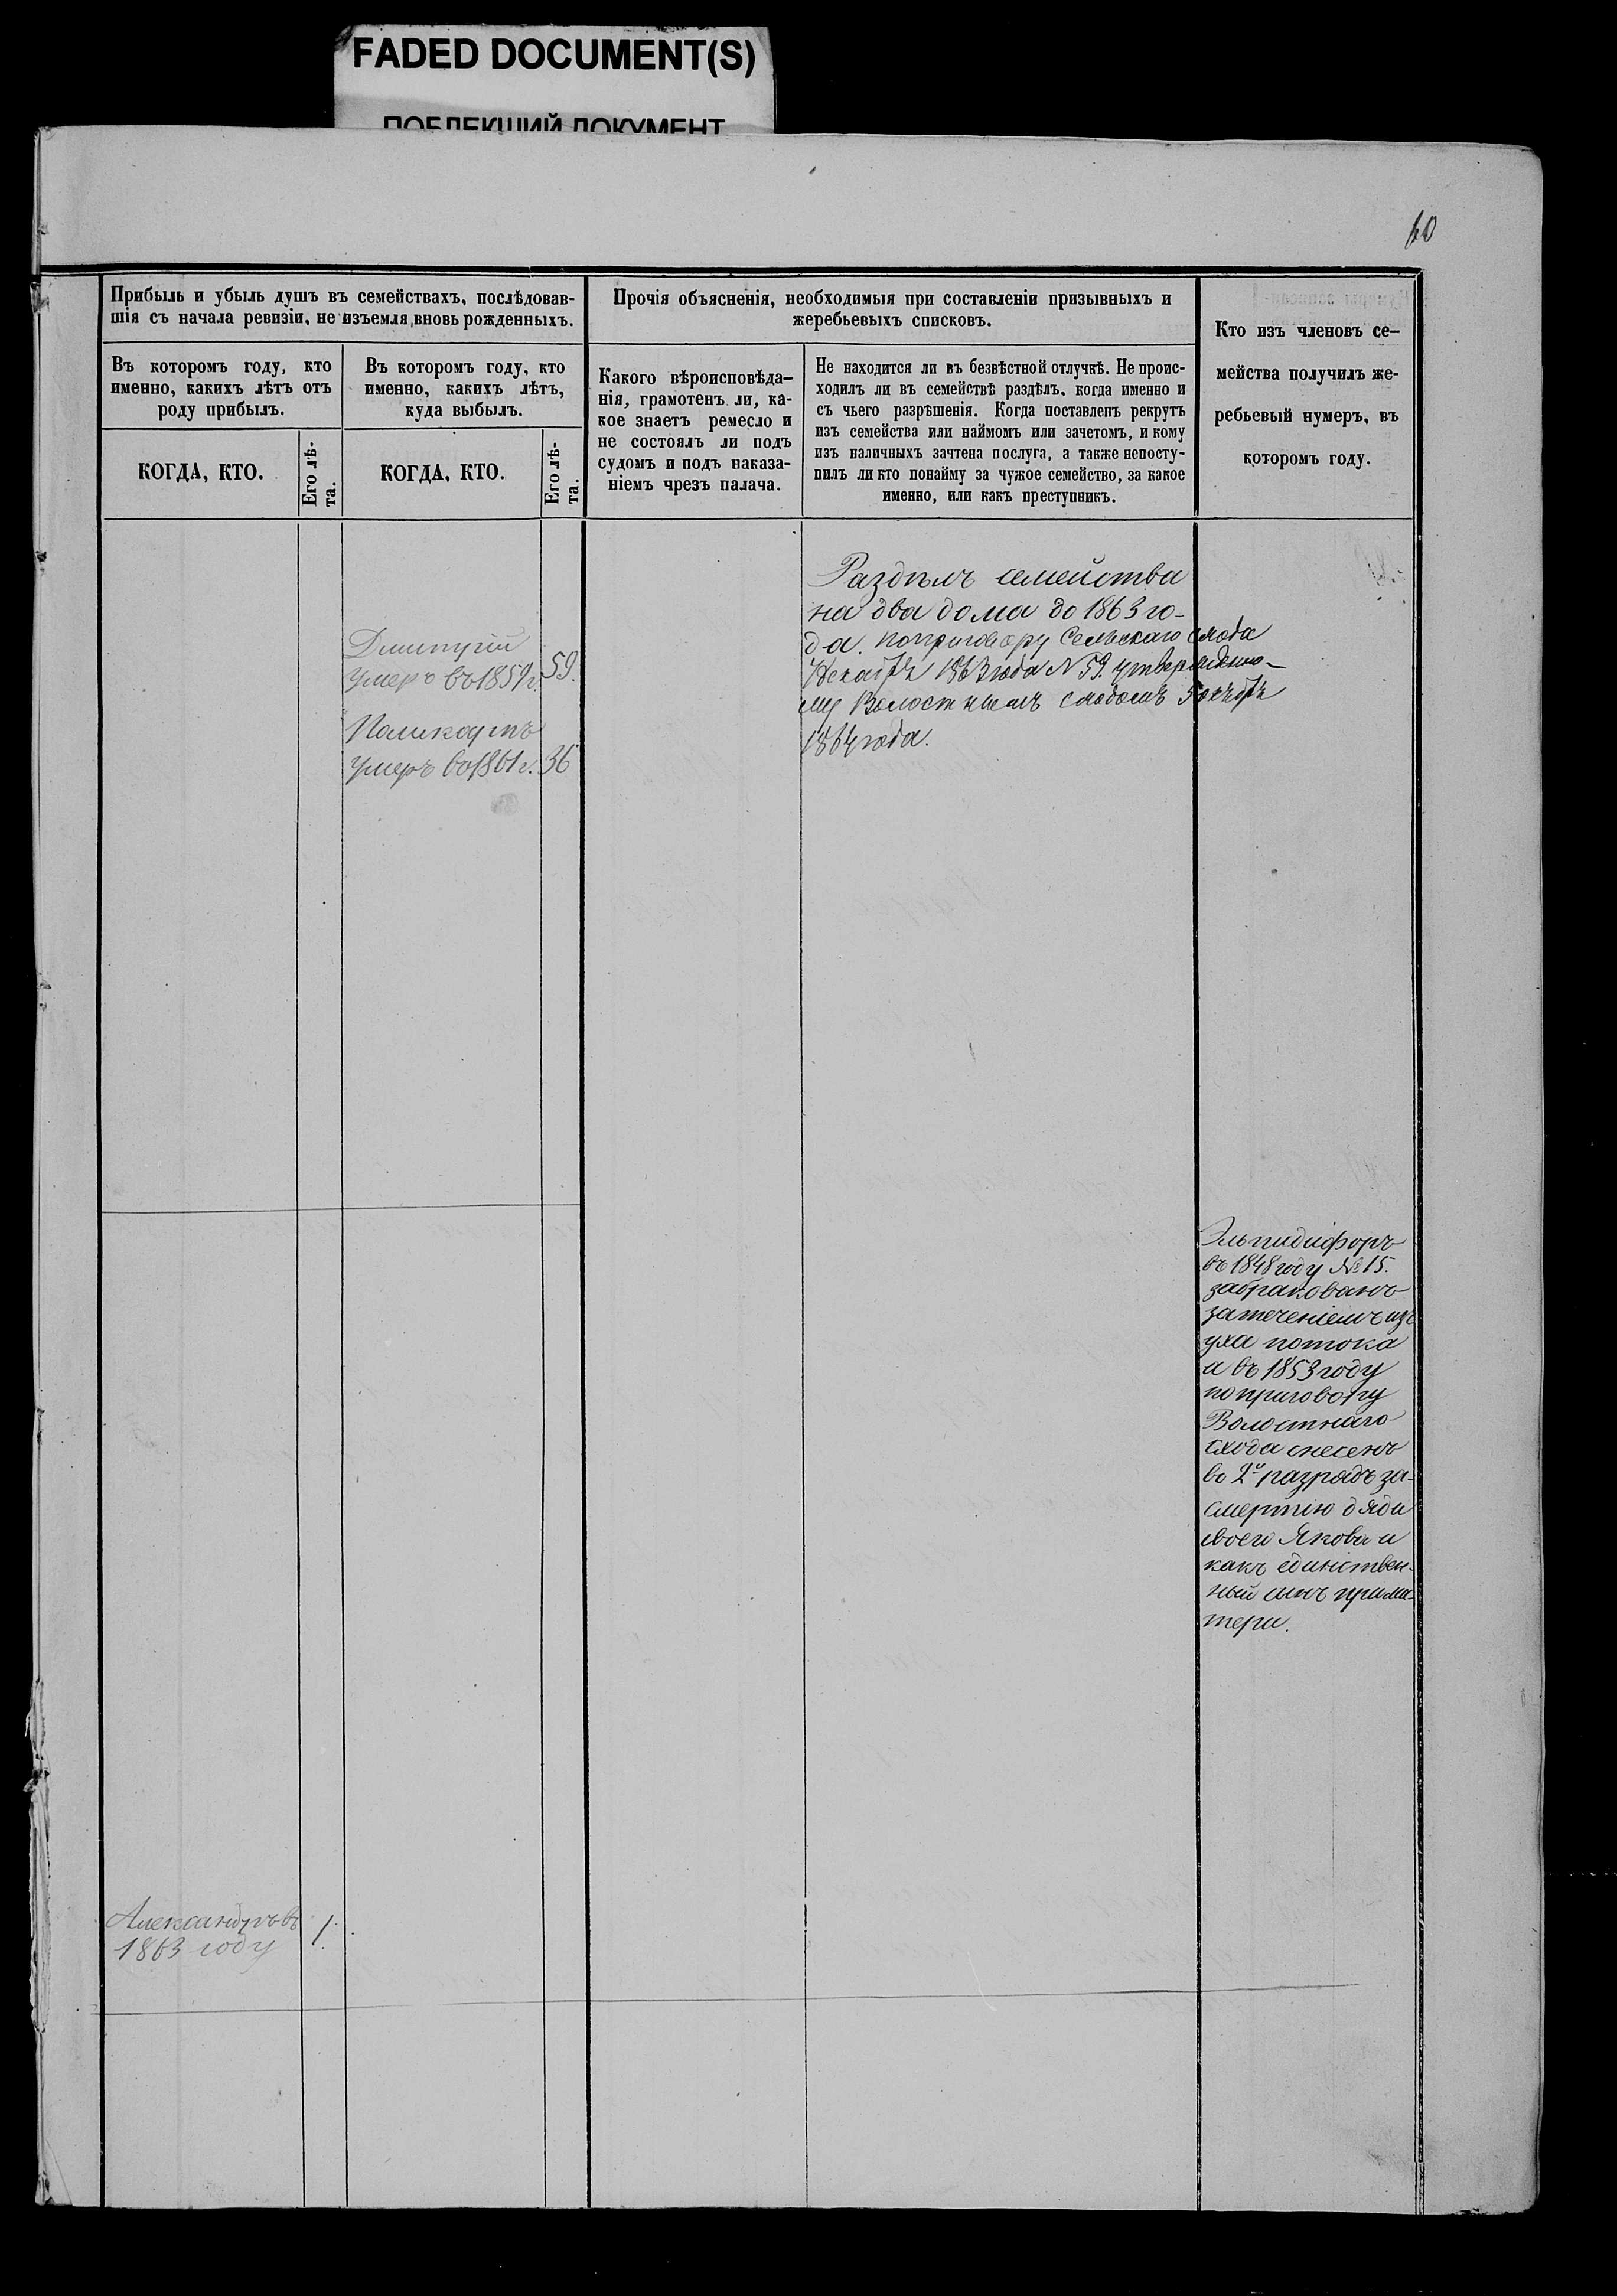 FADED DOCUMENT(S)
ПОБЛЕКШИЙ ДОКУМЕНТ
60
Прибыль и убыль душъ въ семействахъ, послѣдовав-
шія съ начала ревизіи, не изъемля вновь рожденныхъ.
Въ котором году, кто
именно, какихъ лѣтъ отъ
роду прибылъ.
КОГДА, КТО.
Его лѣ-
та.
Въ котором году, кто
именно, какихъ лѣтъ,
куда выбылъ.
КОГДА, КТО.
Его лѣ-
та.
Прочія объясненія, необходимыя при составленіи призывныхъ и
жеребьевыхъ списковъ.
Какого вѣроисповѣда-
нія, грамотенъ ли, ка-
кое знаетъ ремесло и
не состоялъ ли подъ
судомъ и подъ наказа-
ніемъ чрезъ палача.
Не находится ли въ безвѣстной отлучкѣ. Не проис-
ходилъ ли въ семействѣ раздѣлъ, когда именно и
съ чьего разрѣшенія. Когда поставленъ рекрутъ
изъ семейства или наймомъ или зачетомъ, и кому
изъ наличныхъ зачтена послуга, а также непосту-
пилъ ли кто понайму за чужое семейство, за какое
именно, или какъ преступникъ.
Кто изъ членовъ се-
мейства получилъ же-
ребьевый нумеръ, въ
которомъ году.
Дмитрій
умеръ въ 1859 г. 59.
Поликарпъ
умеръ во 1861 г. 36
Раздѣлъ семейства
на два дома до 1863 го-
да. по приговору Сельскаго схода
Декабря 1863 года N 59. утвержденно-
му Волостнымъ сходомъ
1864 года.
Эльпидифоръ
въ 1848 году № 15.
забракованъ
за теченіемъ изъ
уха потока
а въ 1853 году
по приговору
Волостнаго
схода снесенъ
во 2й разрядъ за
смертію дяди
своего Якова и
какъ единствен-
ный сынъ при ма-
тери.
Александръ въ 1.
1863 году